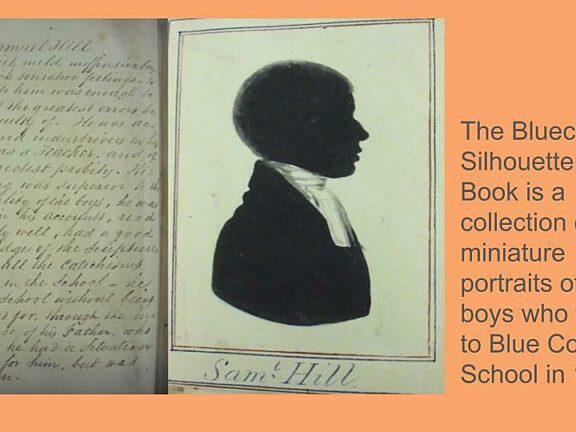 amuel Hill
mild, inoffensive boy
ck sensative feelings
to him was enough to
t the greatest errors he
guilty of. He was ac
and industrious in his
as a Teacher, and of
rictest probity. His
ng was superior to the
lity of the boys, he was
in his accounts, read
ly well, had a good
ledge of the Scriptures
all the Catechisms
in the School
School without being
for, through the
ce of his Father, who
he had a Situation
for him, but was
Sam.l Hill
The Bluec
Silhouette
Book is a
collection
miniature
portraits of
boys who
to Blue Co
School in